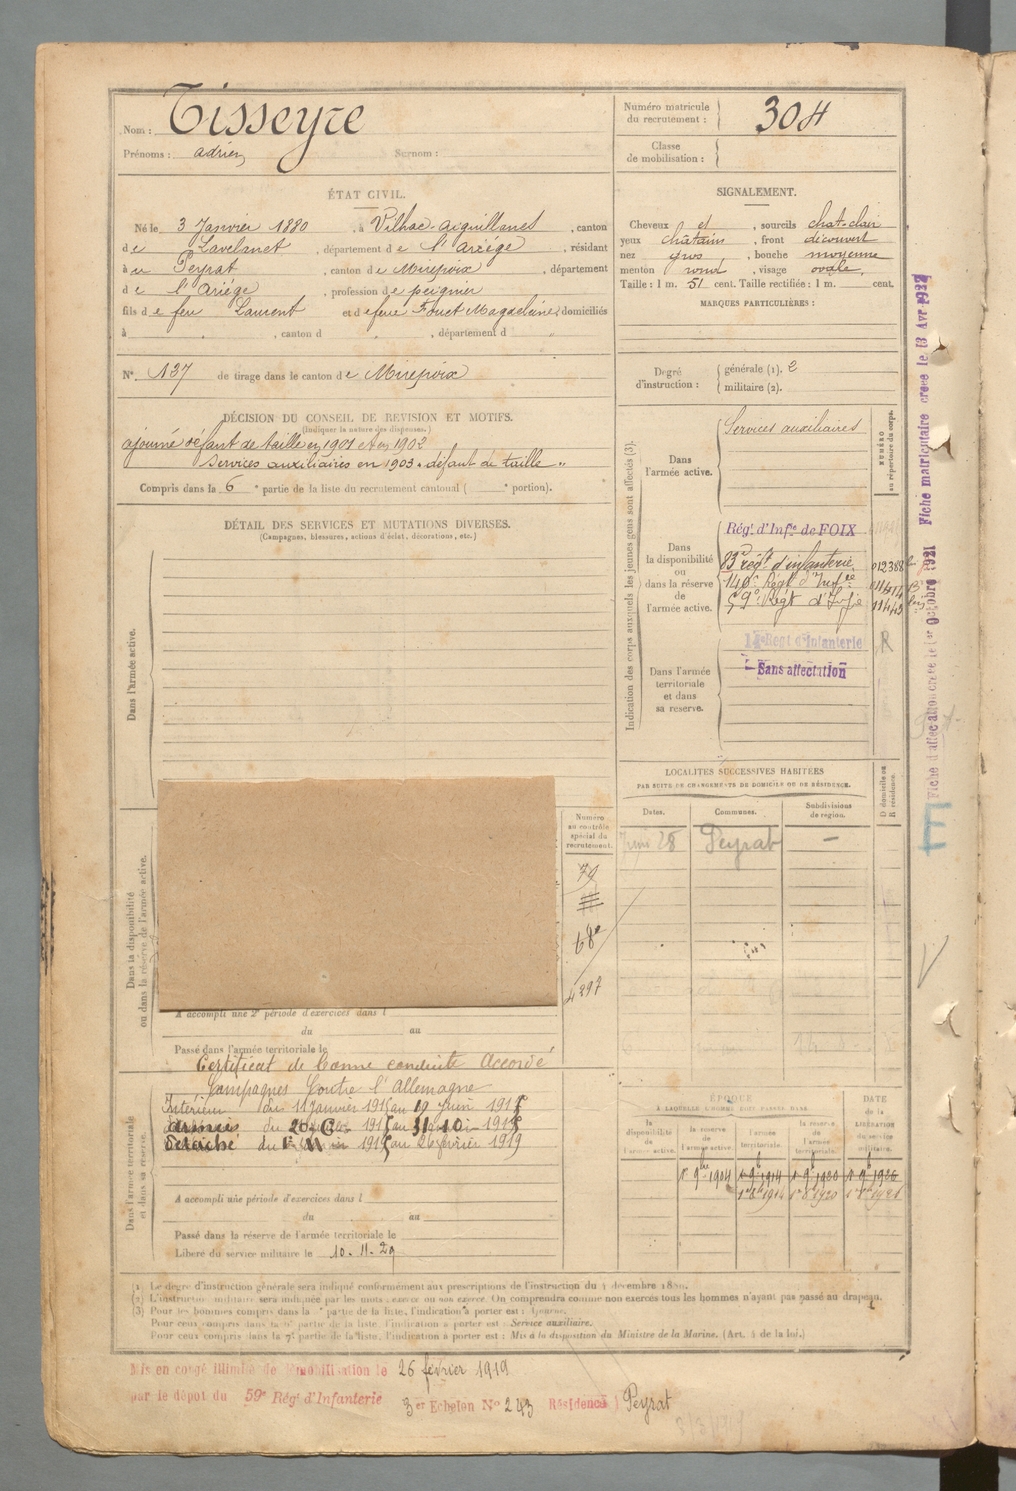 Nom : Tisseyre
Prénoms : adrien Surnom :
Numéro matricule du recrutement : 304
Classe de mobilisation :
ÉTAT CIVIL.
Né le 3 Janvier 1880, à Vilhac-aiguillanes, canton
de Lavelanet, département de l'ariége, résidant
à Peyrat, canton de Mirepoix, département
de l'Ariége, profession de peignier
fils de feu Laurent et de feue Fouet Magdeleine, domiciliés
à , canton d , département d "
N° 137 de tirage dans le canton de Mirepoix
DÉCISION DU CONSEIL DE REVISION ET MOTIFS.
(Indiquer la nature des dispenses.)
ajourné défaut de taille en 1901 et en 1902
Services auxiliaires en 1903 « défaut de taille »
Compris dans la 6e partie de la liste du recrutement cantonal ( e portion).
DÉTAIL DES SERVICES ET MUTATIONS DIVERSES.
(Campagnes, blessures, actions d'éclat, décorations, etc.)
Dans l'armée active.
Dans la disponibilité
ou dans la réserve de l'armée active.
Numéro
au contrôle
spécial du
recrutement.
79
68e
4297
A accompli une 2e période d'exercices dans l
du au
Passé dans l'armée territoriale le
Certificat de bonne conduite Accordé
Campagnes Contre l'Allemagne
Intérieur du 11 Janvier 1915 au 19 Juin 1915
du au
Détaché du 1915 au 26 février 1919
Dans l'armée territoriale
et dans sa réserve.
A accompli une période d'exercices dans l
du au
Passé dans la réserve de l'armée territoriale le
Libéré du service militaire le 10.11.29
SIGNALEMENT.
Cheveux et , sourcils chat-clair
yeux châtain , front découvert
nez gros , bouche moyenne
menton rond , visage ovale
Taille : 1 m. 51 cent. Taille rectifiée : 1 m. cent.
MARQUES PARTICULIÈRES :
Degré d'instruction : générale (1). 2
militaire (2).
Indication des corps auxquels les jeunes gens sont affectés (3).
NUMÉRO
au répertoire du corps.
Dans
l'armée active.
Services auxiliaires
Dans
la disponibilité
ou
dans la réserve
de
l'armée active.
Régt d'Infie de FOIX
83e régt d'infanterie 012388
140e Régt d'Infie
59e Régt d'Infie 11443
Dans l'armée
territoriale
et dans
sa réserve.
14e Regt d'Infanterie R
Sans affectation
LOCALITÉS SUCCESSIVES HABITÉES
PAR SUITE DE CHANGEMENTS DE DOMICILE OU DE RÉSIDENCE.
D domicile ou
R résidence.
Dates. Communes. Subdivisions de région.
Juin 28 Peyrat —
ÉPOQUE
À LAQUELLE L'HOMME DOIT PASSER DANS
DATE
de la
LIBÉRATION
du service
militaire.
la
disponibilité
de
l'armée active.
la réserve
de
l'armée active.
l'armée
territoriale.
la réserve
de
l'armée
territoriale.
1er 9bre 1904 1er 9b 1914 1er 9b 1920 1er 9b 1926
1er 8b 1914 1er 8b 1920
(1) Le degré d'instruction générale sera indiqué conformément aux prescriptions de l'instruction du 4 décembre 1889.
(2) L'instruction militaire sera indiquée par les mots : exercé ou non exercé. On comprendra comme non exercés tous les hommes n'ayant pas passé au drapeau.
(3) Pour les hommes compris dans la e partie de la liste, l'indication à porter est : Ajourné.
Pour ceux compris dans la 6e partie de la liste, l'indication à porter est : Service auxiliaire.
Pour ceux compris dans la 7e partie de la liste, l'indication à porter est : Mis à la disposition du Ministre de la Marine. (Art. 4 de la loi.)
Mis en congé illimité de démobilisation le 26 février 1919
par le dépot du 59e Régt d'Infanterie 3er Echelon N° 243 Résidence Peyrat
Fiche d'affectation créée le 1er Octobre 1921 Fiche matriculaire créée le 13 Avr 1927